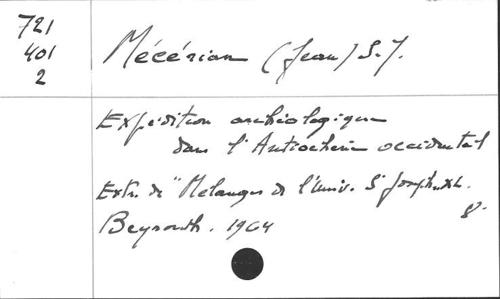 721
401
2
Mécérian (Jean) S. J.
Expédition archéologique
dans l'Antiochène occidental
Extr. de "Mélanges de l'Univ. St Joseph
8°
Beyrouth. 1964